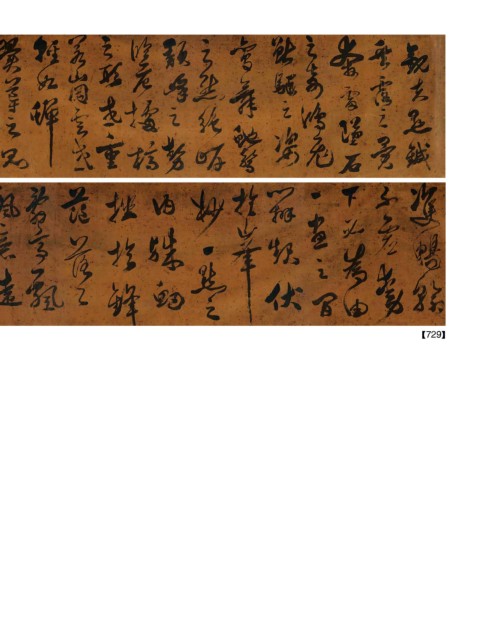 觀夫懸鍼
垂露之異
奔雷墜石
之奇鴻飛
獸駭之姿
鸞舞蛇驚
之態絕岸
頹峰之勢
臨危據槁
之形或重
若崩雲或
輕如蟬
翼導之則
翰
不虛動
下必有由
一畫之間
變起伏
於
一點之
內殊衄
挫於鋒
芒
飄
風
【729】